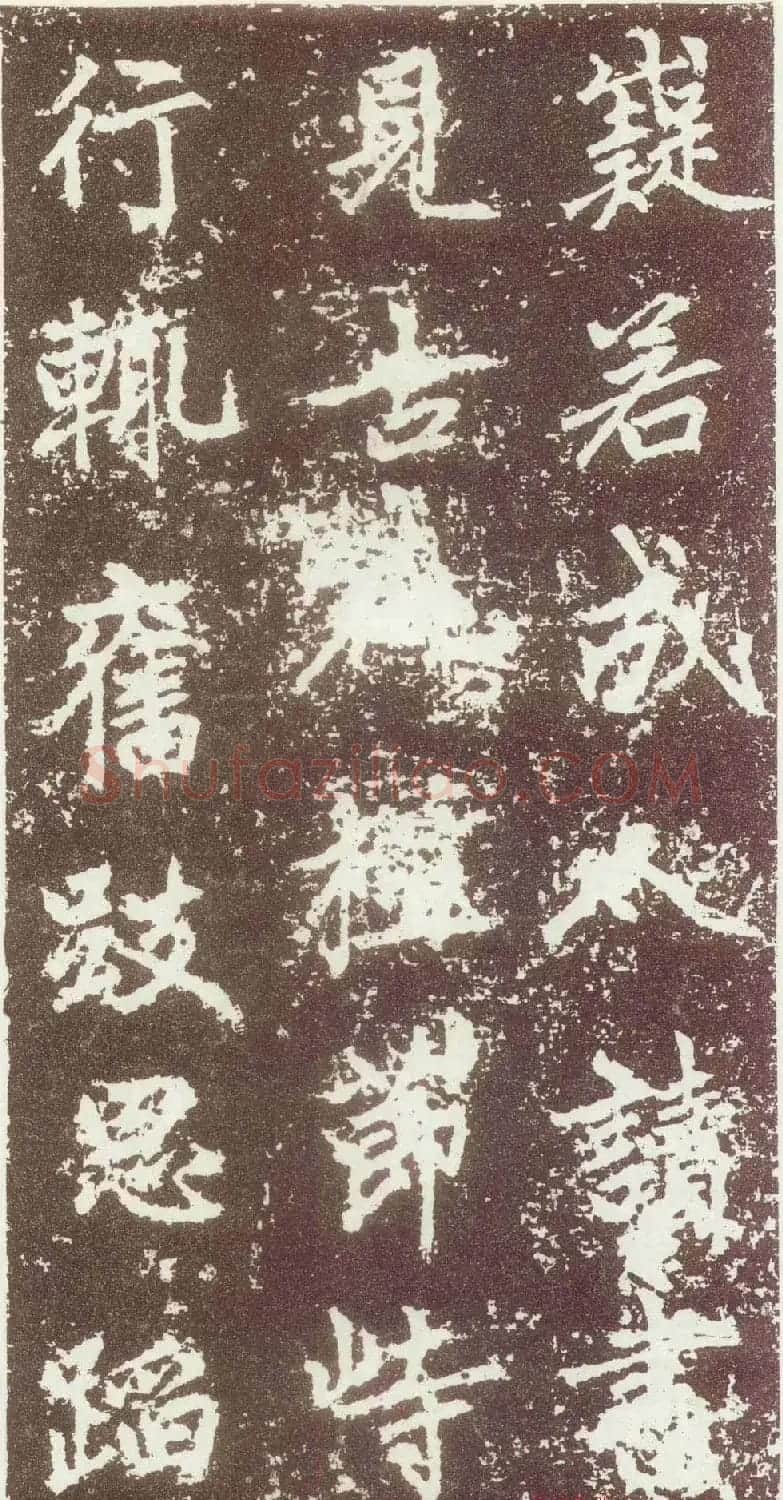 嶷若成人讀書
見古人擅節特
行輒奮發思蹈
Shufaziliao.COM